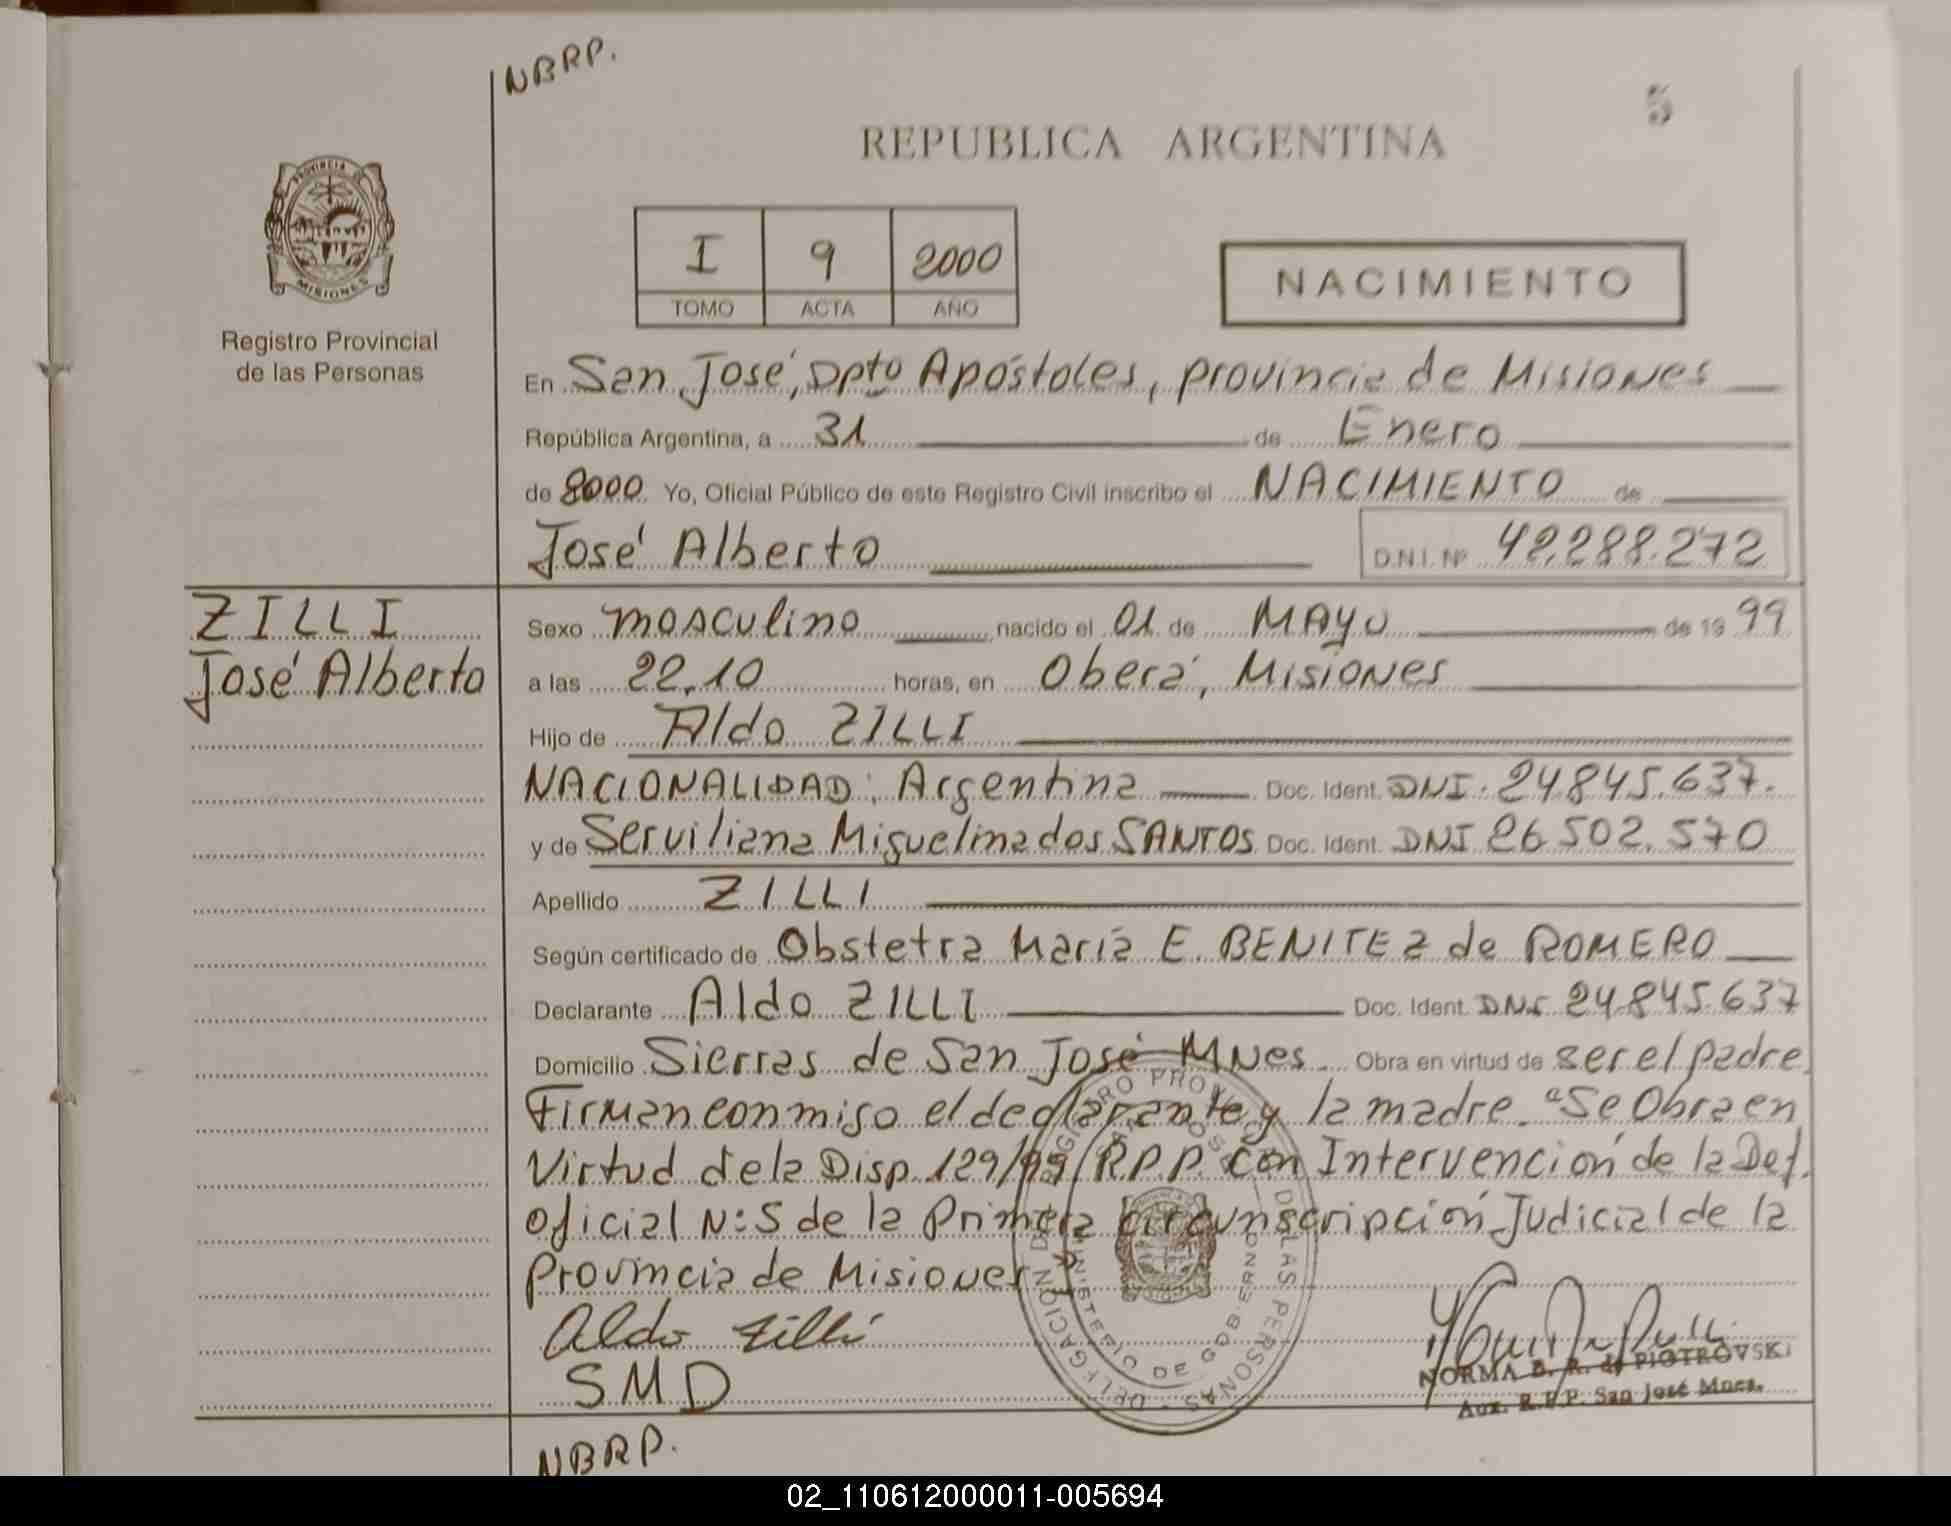 NBRP.
5
REPUBLICA ARGENTINA
PROVINCIA DE
MISIONES
Registro Provincial
de las Personas
I 9 2000
TOMO ACTA AÑO
NACIMIENTO
En San José, Dpto Apóstoles, provincia de Misiones
República Argentina, a 31 de Enero
de 2000 Yo, Oficial Público de este Registro Civil inscribo el NACIMIENTO de
José Alberto D.N.I. Nº 42.288.272
ZILLI
José Alberto
Sexo masculino nacido el 01 de MAYO de 1999
a las 22,10 horas, en Oberá, Misiones
Hijo de Aldo ZILLI
NACIONALIDAD: Argentina Doc. Ident. DNI. 24.845.637.
y de Serviliana Miguelina dos SANTOS Doc. Ident. DNI 26.502.570
Apellido ZILLI
Según certificado de Obstetra María E. BENITEZ de ROMERO
Declarante Aldo ZILLI Doc. Ident. DNI 24.845.637
Domicilio Sierras de San José Mnes Obra en virtud de ser el padre
Firman conmigo el declarante y la madre. "Se Obra en
Virtud de la Disp. 129/99 R.P.P. con Intervención de la Def.
oficial Nº: 5 de la Primera circunscripción Judicial de la
Provincia de Misiones
Aldo Zilli
SMD
DELEGACION DEL REGISTRO PROVINCIAL DE LAS PERSONAS
MINISTERIO DE GOBIERNO
NORMA B. R. de PIOTROVSKI
Aux. R.P.P. San José Mnes.
NBRP.
02_110612000011-005694